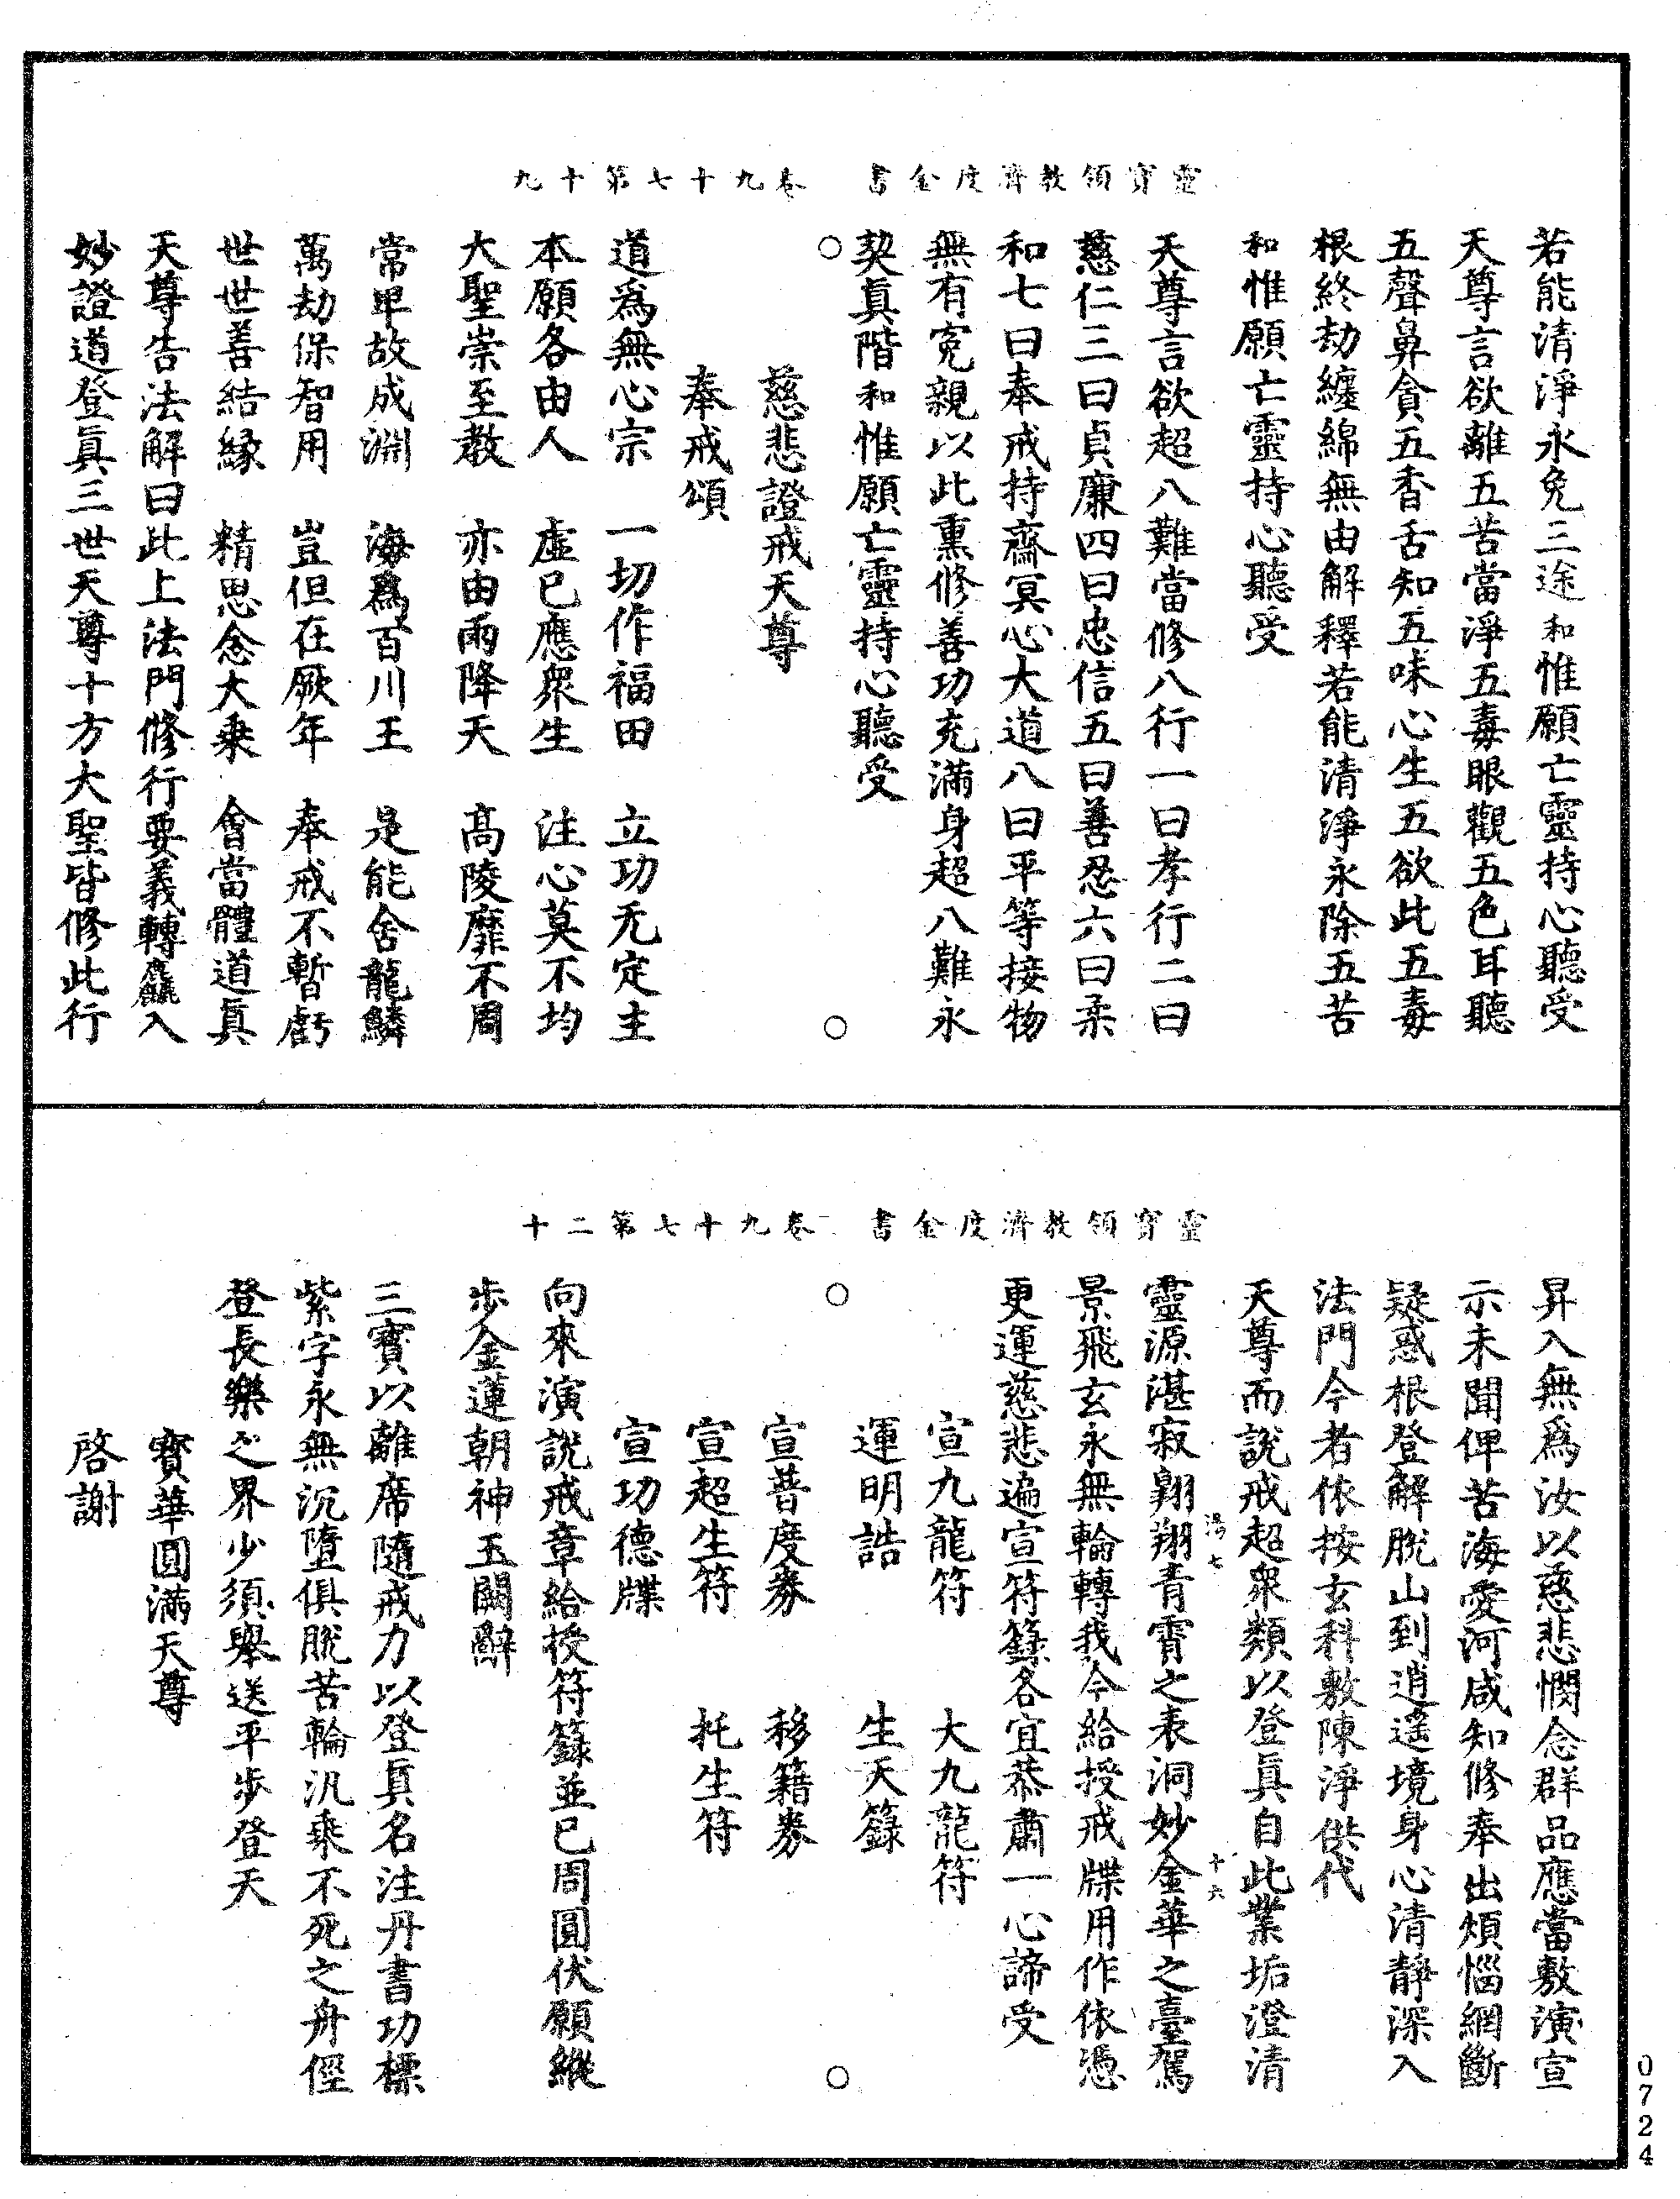 靈寳領教濟度金書　卷九十七第十九
若能清淨永免三途和惟願亡靈持心聽受
天尊言欲離五苦當淨五毒眼觀五色耳聽
五聲鼻貪五香舌知五味心生五欲此五毒
根終劫纏綿無由解釋若能清淨永除五苦
和惟願亡靈持心聽受
天尊言欲超八難當修八行一曰孝行二曰
慈仁三曰貞廉四曰忠信五曰善忍六曰柔
和七曰奉戒持齋冥心大道八曰平等接物
無有寃親以此熏修善功充滿身超八難永
契眞階和惟願亡靈持心聽受
○　○
慈悲證戒天尊
奉戒頌
道爲無心宗　一切作福田　立功无定主
本願各由人　虛已應衆生　注心莫不均
大聖崇至教　亦由雨降天　高陵靡不周
常卑故成淵　海爲百川王　是能舍龍鱗
萬劫保智用　豈但在厥年　奉戒不暫虧
世世善結緣　精思念大乗　會當體道眞
天尊告法解曰此上法門修行要義轉麤入
妙證道登眞三世天尊十方大聖皆修此行
靈寳領教濟度金書　卷九十七第二十
昇入無爲汝以慈悲憫念群品應當敷演宣
示未聞俾苦海愛河咸知修奉出煩惱網斷
疑惑根登解脫山到逍遥境身心清靜深入
法門今者依按玄科敷陳淨供代
天尊而說戒超衆類以登眞自此業垢澄清
湯七　十六
靈源湛寂翺翔青霄之表洞妙金華之臺駕
景飛玄永無輪轉我今給授戒牒用作依憑
更運慈悲遍宣符籙各宜恭肅一心諦受
宣九龍符　大九龍符
運明誥　生天籙
○　○
宣普度券　移籍券
宣超生符　托生符
宣功德牒
向來演說戒章給授符籙並已周圓伏願縱
步金蓮朝神玉闕辭
三寳以離席隨戒力以登眞名注丹書功標
紫字永無沉墮俱脫苦輪汎乗不死之舟徑
登長樂之界少須舉送平步登天
寳華圓滿天尊
啓謝
0724